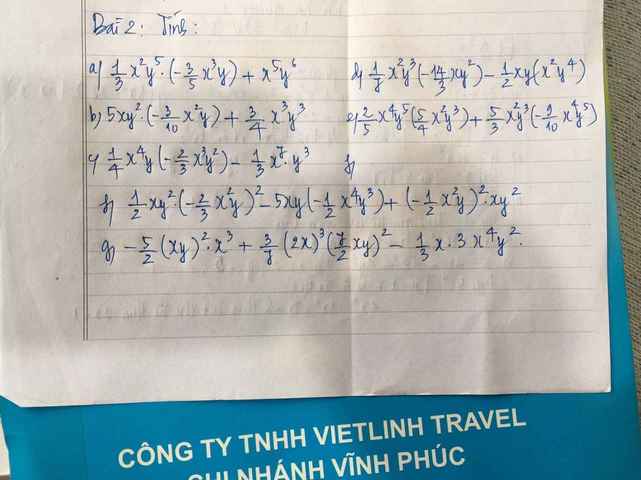 Bài 2: Tính:
a) 1/3 x²y⁵.(-3/5 x³y) + x⁵y⁶
d) 1/7 x²y³(-14/3 xy²) - 1/2 xy(x²y⁴)
b) 5xy².(-3/10 x²y) + 3/4 x³y³
e) 2/5 x⁴y⁵(5/4 x²y³) + 5/3 x²y³(-9/10 x⁴y⁵)
c) 1/4 x⁴y(-2/3 x³y²) - 1/3 x⁷.y³
f)
f) 1/2 xy².(-2/3 x²y)² - 5xy(-1/2 x⁴y³) + (-1/2 x²y)².xy²
g) -5/2 (xy)².x³ + 3/7 (2x)³(7/2 xy)² - 1/3 x.3x⁴y².
CÔNG TY TNHH VIETLINH TRAVEL
CHI NHÁNH VĨNH PHÚC